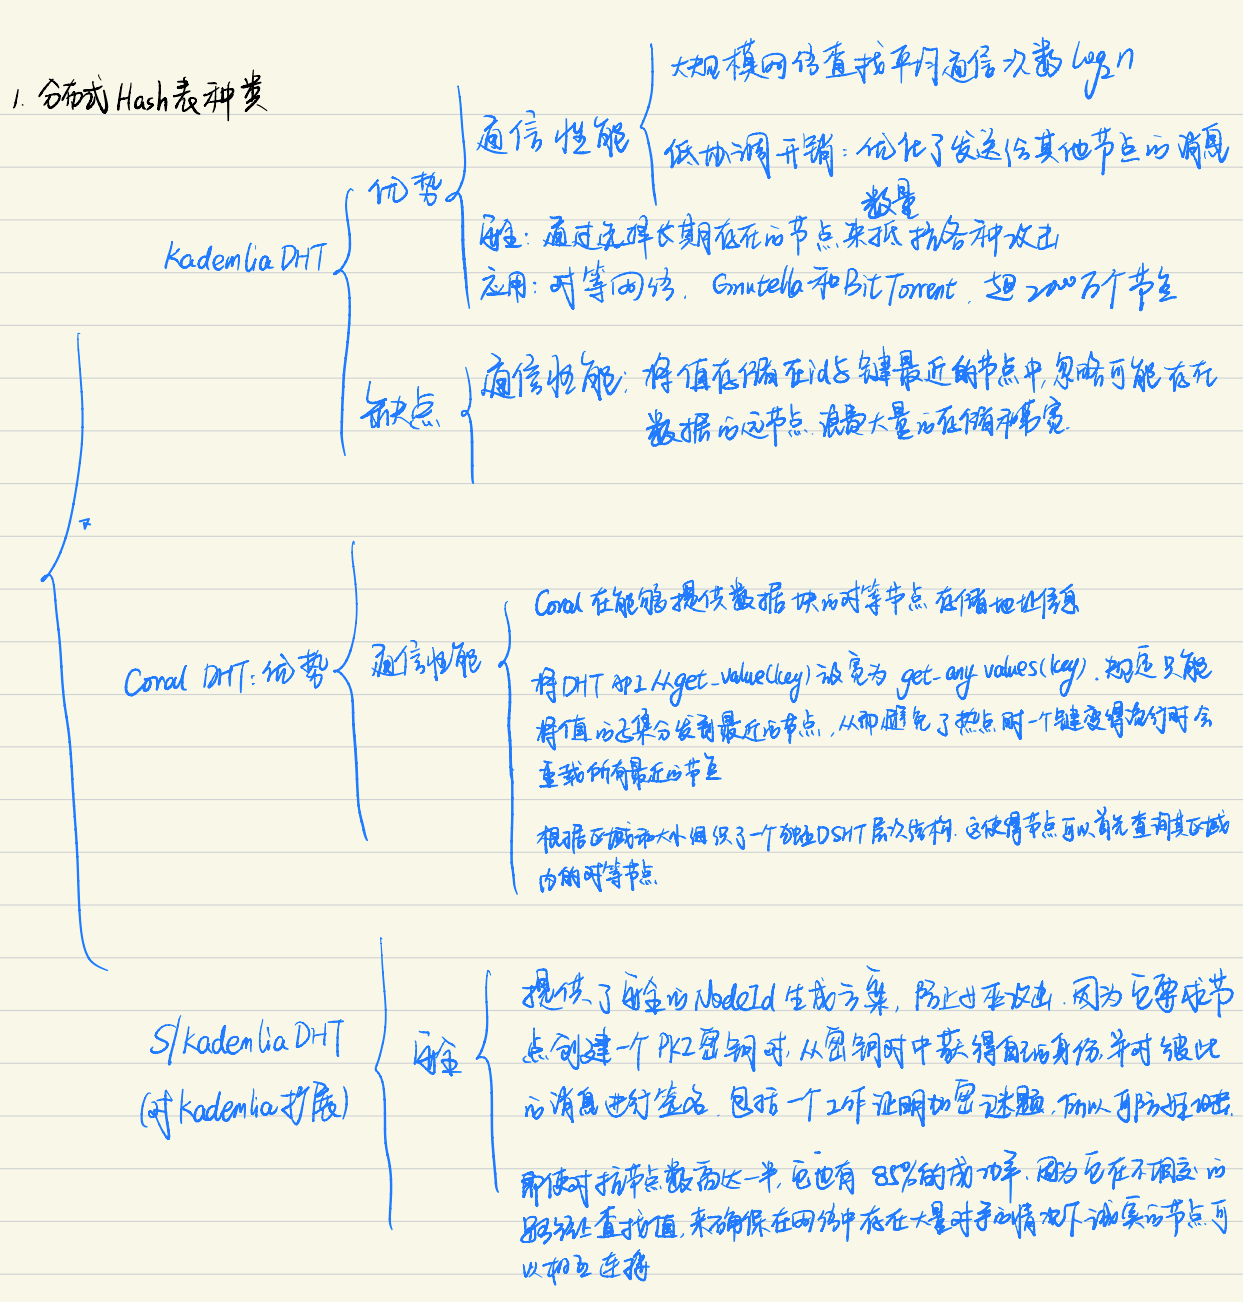 1. 分布式Hash表种类
大规模网络查找平均通信次数 log₂n
通信性能
低协调开销：优化了发送给其他节点的消息
数量
优势
安全：通过选择长期存在的节点来抵抗各种攻击
Kademlia DHT
应用：对等网络，Gnutella和BitTorrent，超2000万个节点
通信性能：将值存储在id与键最近的节点中,忽略可能存在
缺点
数据的远节点.浪费大量的存储和带宽.
Coral 在能够提供数据块的对等节点存储地址信息
通信性能
Coral DHT：优势
将DHT API从get_value(key)改变为 get_any_values(key). 规定只能
将值的子集分发到最近的节点,从而避免了热点,即一个键变得流行时会
重载所有最近的节点
根据区域和大小组织了一个独立DSHT层次结构.这使得节点可以首先查询其区域
内的对等节点
提供了安全的NodeId生成方案，防止女巫攻击.因为它要求节
S/Kademlia DHT
点创建一个PKI密钥对,从密钥对中获得自己的身份,并对彼此
安全
(对Kademlia扩展)
的消息进行签名.包括一个工作证明加密谜题,所以
即使对抗节点数高达一半,它也有85%的成功率.因为它在不相交的
路径上查找值,来确保在网络中存在大量对手的情况下诚实的节点可
以相互连接